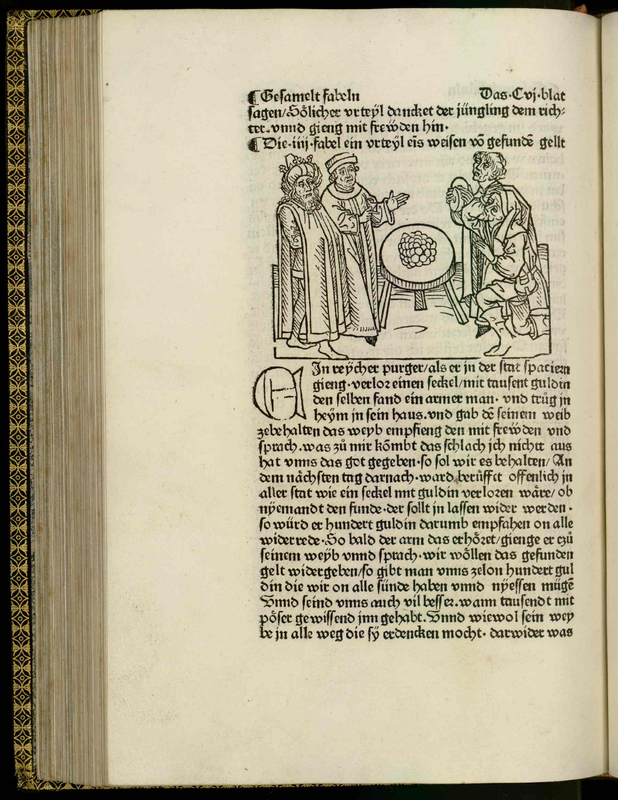 ¶ Gesamelt fabeln Das·Cvj·blat
sagen/Sölicher vrteyl dancket der jüngling dem rich⸗
ter·vnnd gieng mit frewden hin·
¶ Die·iiij·fabel ein vrteyl eīs weisen võ gefundẽ gellt
EIn reycher purger/als er in der stat spaciern
gieng·verlor einen seckel/mit tausent guldin
den selben fand ein armer man· vnd trůg jn
heym in sein haus·vnd gab dẽ seinem weib
zebehalten das weyb empfieng den mit frewden vnd
sprach·was zů mir kõmbt das schlach jch nicht aus
hat vnns das got gegeben·so sol wir es behalten/An
dem nächsten tag darnach·ward berüfft offenlich jn
aller stat wie ein seckel mit guldin verloren wäre/ob
nyemandt den funde·der sollt jn lassen wider werden·
so würd er hundert guldin darumb empfahen on alle
widerrede·So bald der arm das erhöret/gienge er czů
seinem weyb vnnd sprach·wir wöllen das gefunden
gelt widergeben/so gibt man vnns zelon hundert gul
din die wir on alle sünde haben vnnd nyessen mügẽ
Vnnd seind vnns auch vil besser·wann tausendt mit
pöser gewissend jnn gehabt·Vnnd wiewol sein wey
be jn alle weg die sy erdencken mocht· darwider was